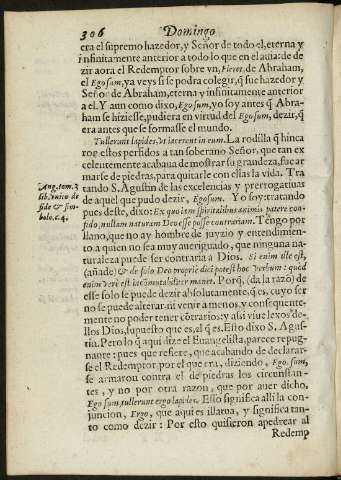 306 Domingo
era el supremo hazedor, y Señor de todo el, eterna y
infinitamente anterior a todo lo que en el
zir aora el Redemptor sobre vn, Fieret, de Abraham,
el Ego sum, ya veys si se podra colegir, q̃ fue hazedor y
Señor de Abraham, eterna y infinitamente anterior
a el. Y aun como dixo, Ego sum, yo soy antes q̃ Abra-
ham se hiziesse, pudiera en virtud del Ego sum, dezir, q̃
era antes que se formasse el mundo.
Tullerunt lapides, vt iacerent in eum. La rodilla q̃ hinca
ron estos perfidos a tan soberano Señor, que tan ex
celentemente acabaua de mostrar su grandeza, fue ar
marse de piedras, para quitarle con ellas la vida. Tra
tando S. Agustin de las excelencias y prerrogatiuas
de aquel que pudo dezir, Ego sum. Y o soy: tratando
pues deste, dixo: Ex quo iam spiritalibus animis patere con-
fido, nullam naturam Deo esse posse contrariam. Tengo por
llano, que no ay hombre de juyzio y entendimien-
to a quien no sea muy aueriguado, que ninguna na-
turaleza puede ser contraria a Dios. Si enim ille est,
(añade) & de solo Deo proprie dici potest hoc verbum: quod
enim verè est incōmutabiliter manet. Porq̃, (da la razō) de
esse solo se puede dezir absolutamente, q̃ es, cuyo ser
no se puede alterar ni venir a menos, y conseqūente-
mente no poder tener cōtrario: y assi viue lexos de-
llos Dios, supuesto que es, el q̃ es. Esto dixo S. Agus-
tin. Pero lo q̃ aqui dize el Euangelista, parece repug-
nante: pues que refiere, que acabando de declarar-
se el Redemptor por el que era, diziendo, Ego sum,
se armaron contra el de piedras los circunstan-
tes, y no por otra razon, que por auer dicho,
Ego sum, tullerunt ergo lapides. Esso significa alli la con-
juncion, Ergo, que aqui es illatiua, y significa tan-
to como dezir: Por esto quisieron apedrear al
Redemp
Aug. tom. 3
lib. vnico de
fide & sim-
bolo. c. 4.